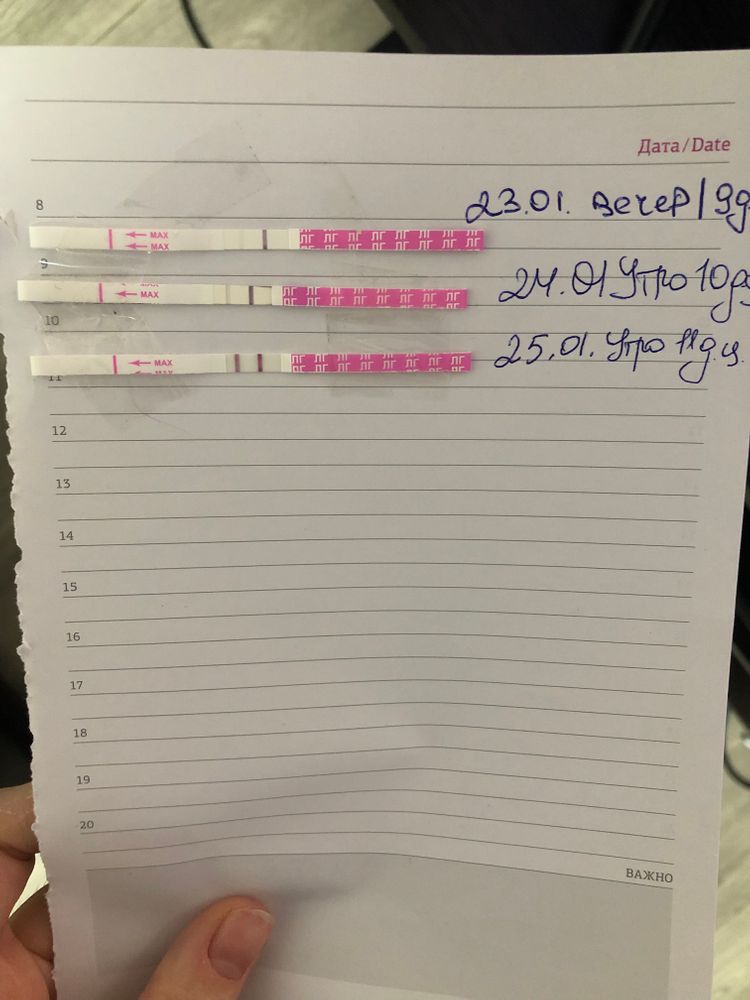 Дата/Date
8
23.01. вечер/9д
MAX
MAX
ЛГ ЛГ ЛГ ЛГ ЛГ ЛГ ЛГ ЛГ
9
24.01 Утро 10д
MAX
ЛГ ЛГ ЛГ ЛГ ЛГ ЛГ ЛГ ЛГ
10
25.01. Утро 11д.ц.
MAX
MAX
ЛГ ЛГ ЛГ ЛГ ЛГ ЛГ ЛГ ЛГ
11
12
13
14
15
16
17
18
19
20
ВАЖНО